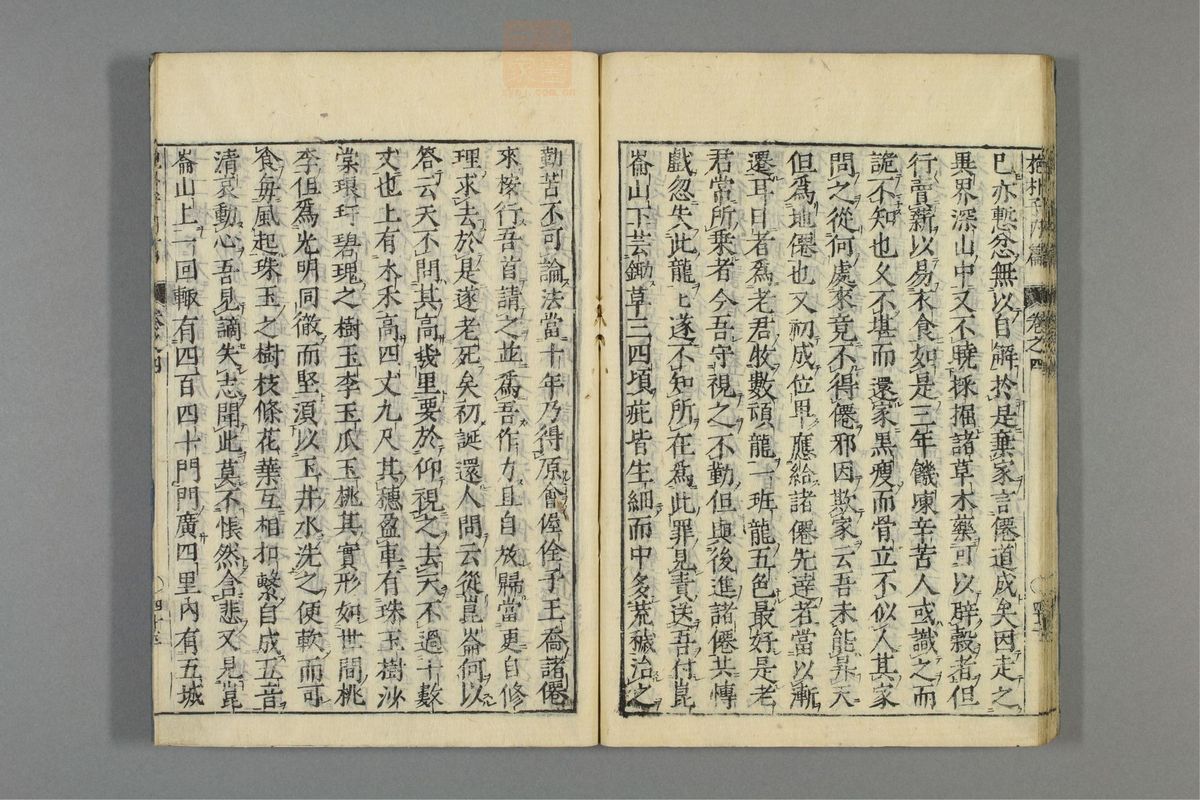 抱朴子內篇 卷之四
已亦慙忿無以自解於是棄家言僊道成矣因走之
異界深山中又不曉採掘諸草木藥可以辟穀者但
行賣薪以易衣食如是三年饑凍辛苦人或識之而
詭不知也久不堪而還家黑瘦而骨立不似人其家
問之從何處來竟不得僊邪因欺家云吾未能昇天
但爲地僊也又初成位卑應給諸僊先達者當以漸
遷耳日者爲老君牧數頭龍一班龍五色最好是老
君常所乘者今吾守視之不勤但與後進諸僊共博
戲忽失此龍龍遂不知所在爲此罪見責送吾付崑
崙山下芸鋤草三四頃並皆生細而中多荒穢治之
勤苦不可論法當十年乃得原會偓佺子王喬諸僊
來按行吾首請之並爲吾作力且自放歸當更自修
理求去於是遂老死矣初誕還人問云從崑崙何以
答云天不問其高幾里要於仰視之去天不過十數
丈也上有木禾高四丈九尺其穗盈車有珠玉樹沙
棠琅玕碧瑰之樹玉李玉瓜玉桃其實形如世間桃
李但爲光明同徹而堅須以玉井水洗之便軟而可
食每風起珠玉之樹枝條花葉互相扣擊自成五音
清哀動心吾見謫失志聞此莫不悵然含悲又見崑
崙山上一回輙有四百四十門門廣四里內有五城